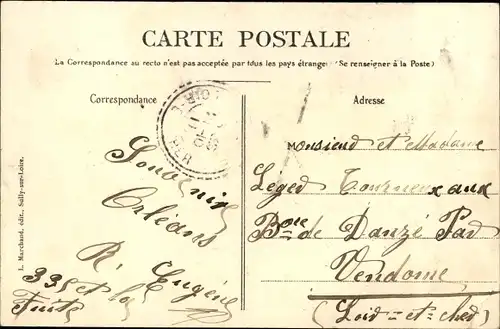 CARTE POSTALE
La Correspondance au recto n'est pas acceptée par tous les pays étrangers (Se renseigner à la Poste)
Correspondance
Adresse
Souvenir
Orléans
R. Eugène
L. Marchand, édit., Sully-sur-Loire.
Monsieur et Madame
Leged Tourneux aux
Bone de Danzé Par
Vendome
(Loir-et-cher)